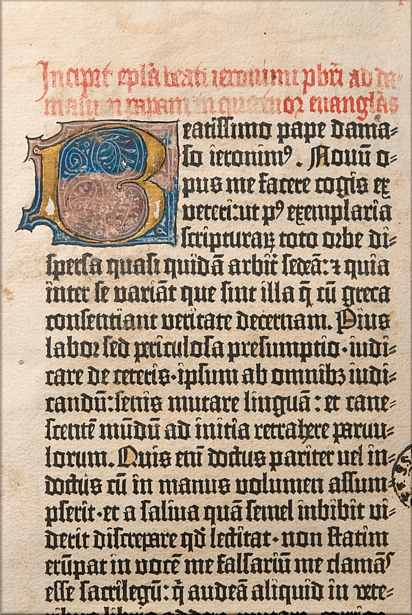 Incipit epl̄a beati ieronimi pb̄ri ad da-
masū papam in quatuor euangl̄is
Beatissimo pape dama-
so ieronimꝰ. Nouū o-
pus me facere cogis ex
veteri: ut pꝰ exemplaria
scripturaꝝ toto orbe di-
spersa quasi quidā arbit̄ sedeā: ⁊ quia
inter se variāt que sint illa q̄ cū greca
consentiant veritate decernam. Pius
labor sed periculosa presumptio · iudi-
care de ceteris · ipsum ab omnibꝫ iudi-
candū: senis mutare linguā: et cane-
scentē mūdū ad initia retrahere paruu-
lorum. Quis enī doctus pariter uel in-
doctus cū in manus volumen assum-
pserit · et a saliua quā semel inbibit vi-
derit discrepare qd̄ lectitat · non statim
erūpat in vocē me falsariū me clamās
esse sacrilegū: q̄ audeā aliquid in vete-